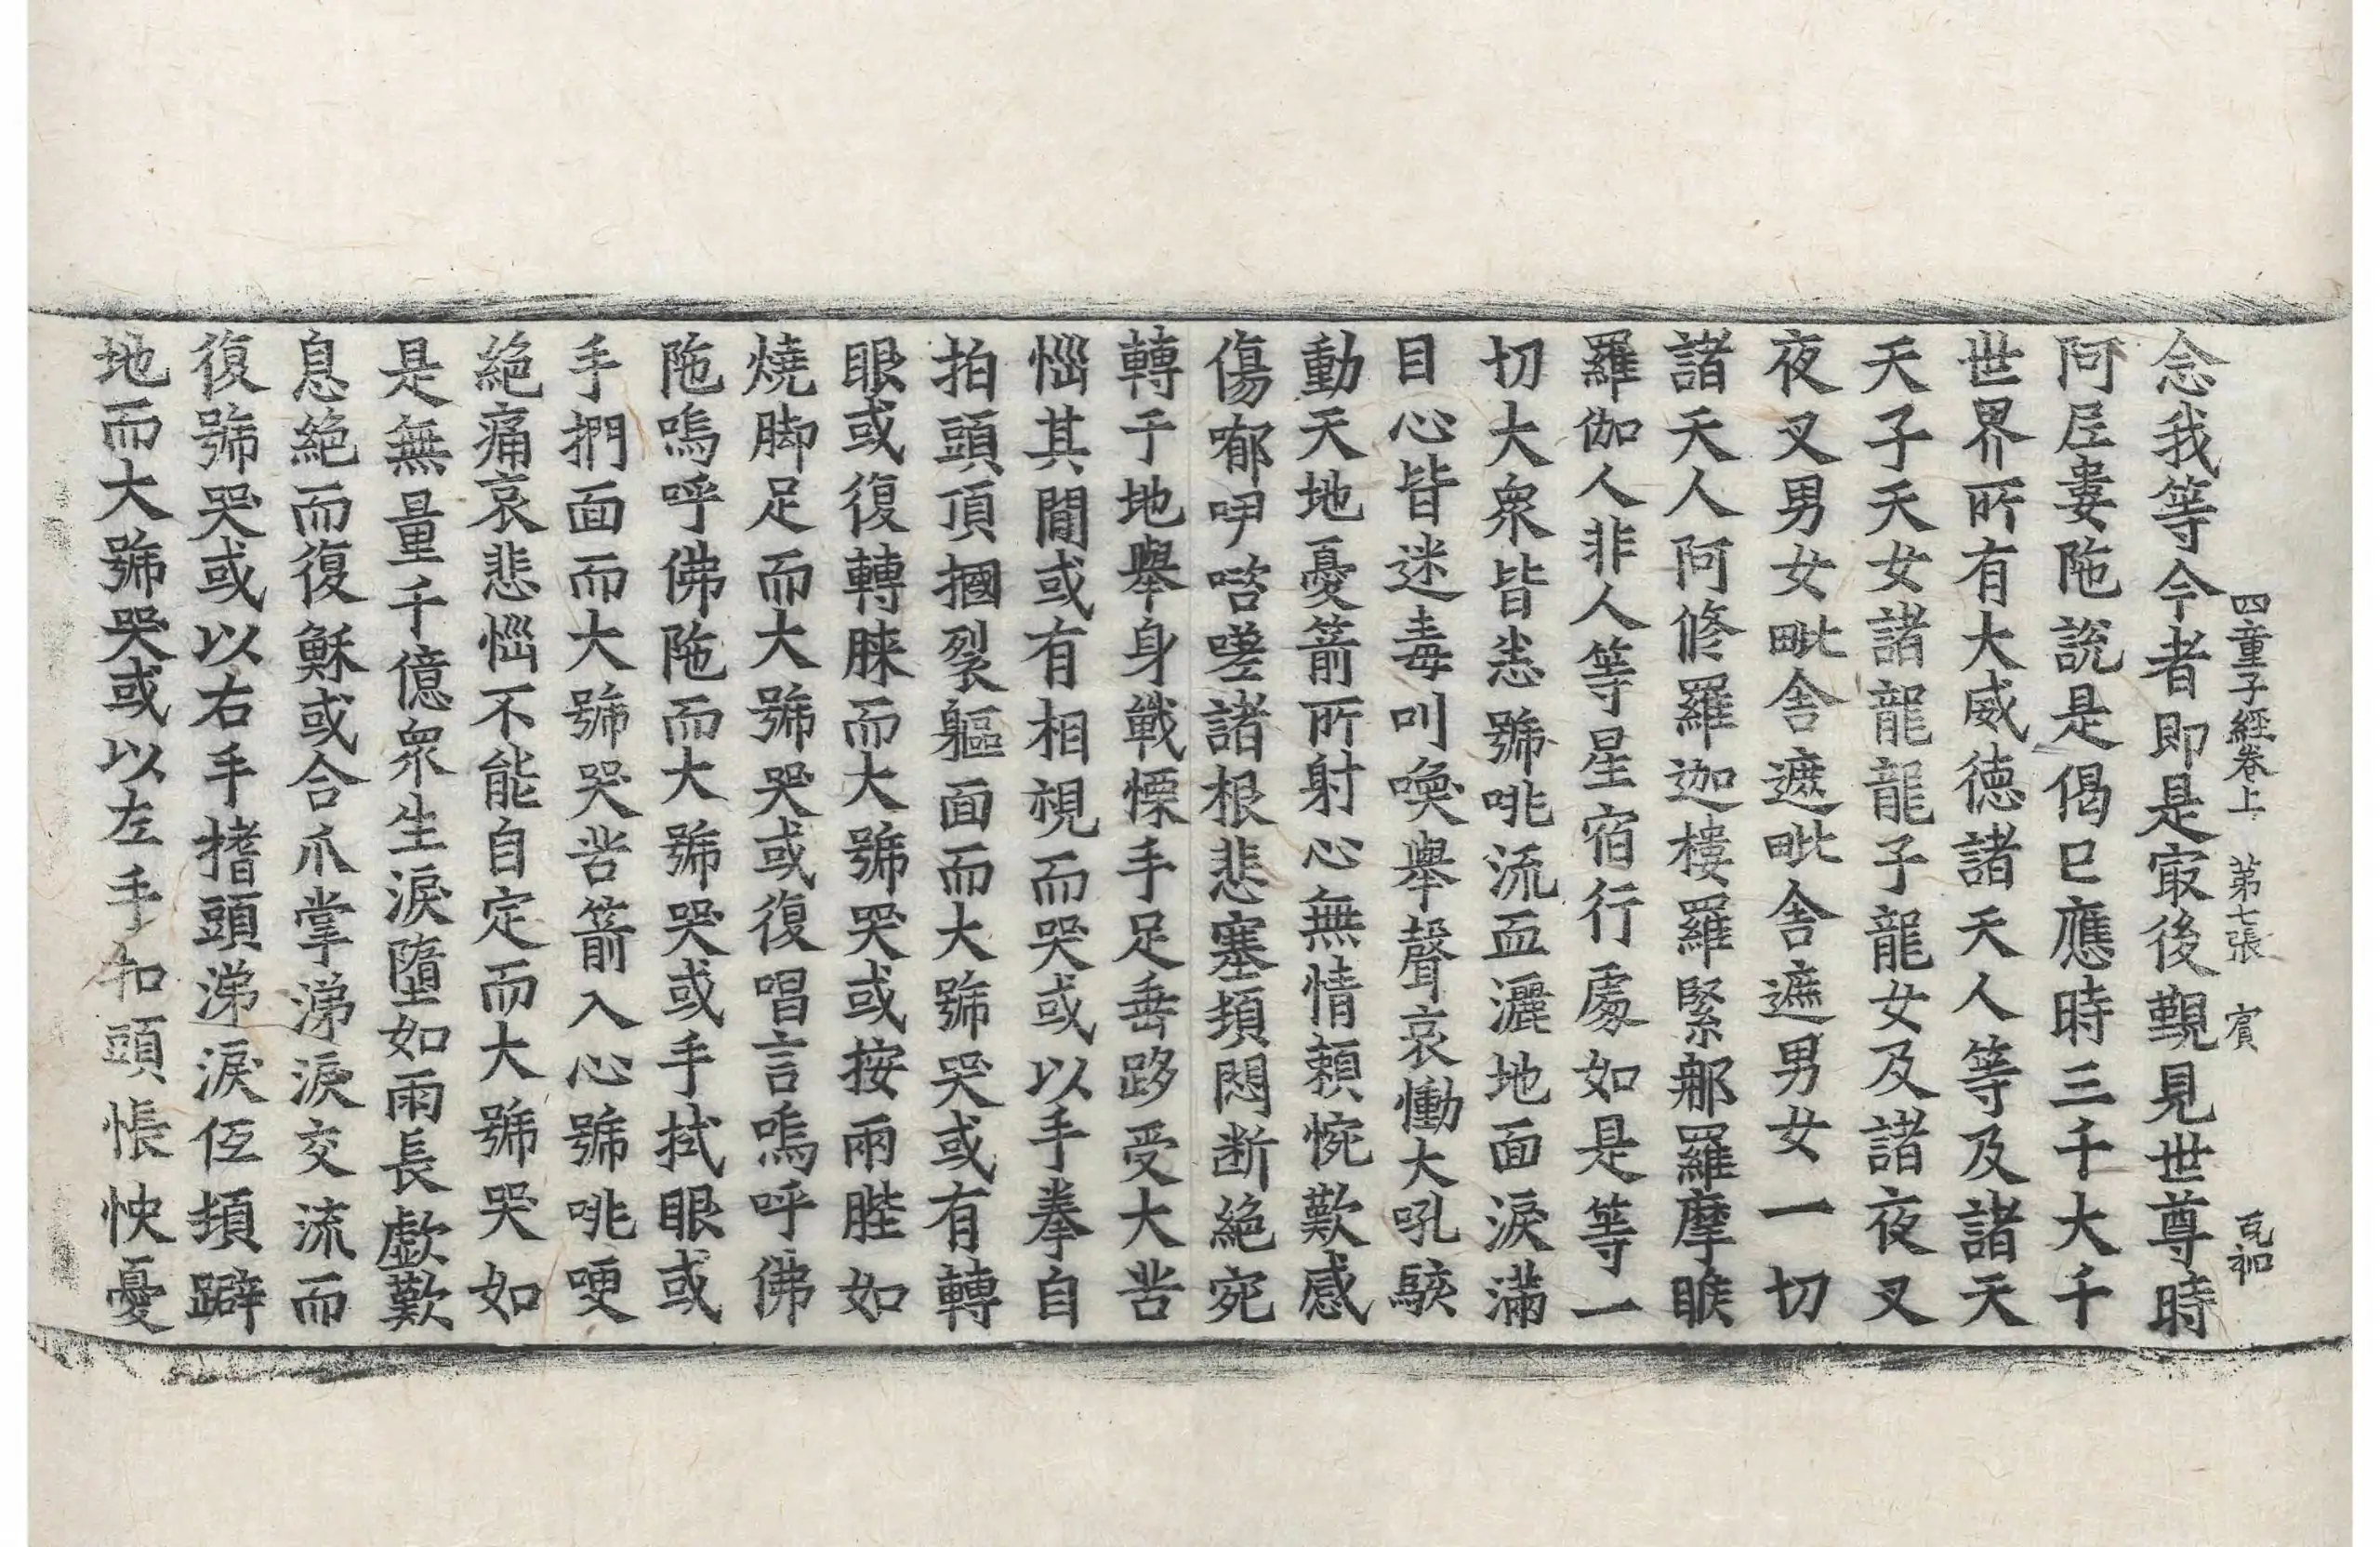 四童子經卷上 第七張 賓 瓦和
念我等今者即是㝡後覲見世尊時
阿㝹婁陁說是偈已應時三千大千
世界所有大威德諸天人等及諸天
天子天女諸龍龍子龍女及諸夜叉
夜叉男女毗舍遮毗舍遮男女一切
諸天人阿修羅迦樓羅緊那羅摩睺
羅伽人非人等星宿行處如是等一
切大衆皆悉號咷流血灑地面淚滿
目心皆迷毒叫喚舉聲哀慟大吼駭
動天地憂箭所射心無情賴惋歎感
傷郁咿㗭嗟諸根悲塞頓悶断絕宛
轉于地舉身戰慄手足垂跢受大苦
惱其間或有相視而哭或以手拳自
拍頭頂摑裂軀面而大號哭或有轉
眼或復轉睞而大號哭或按兩䏶如
燒脚足而大號哭或復唱言嗚呼佛
陁嗚呼佛陁而大號哭或手拭眼或
手捫面而大號哭苦箭入心號咷哽
絕痛哀悲惱不能自定而大號哭如
是無量千億衆生淚墮如雨長歔歎
息絕而復穌或合爪掌涕淚交流而
復號哭或以右手搘頭涕淚伍頓躃
地而大號哭或以左手扣頭悵怏憂